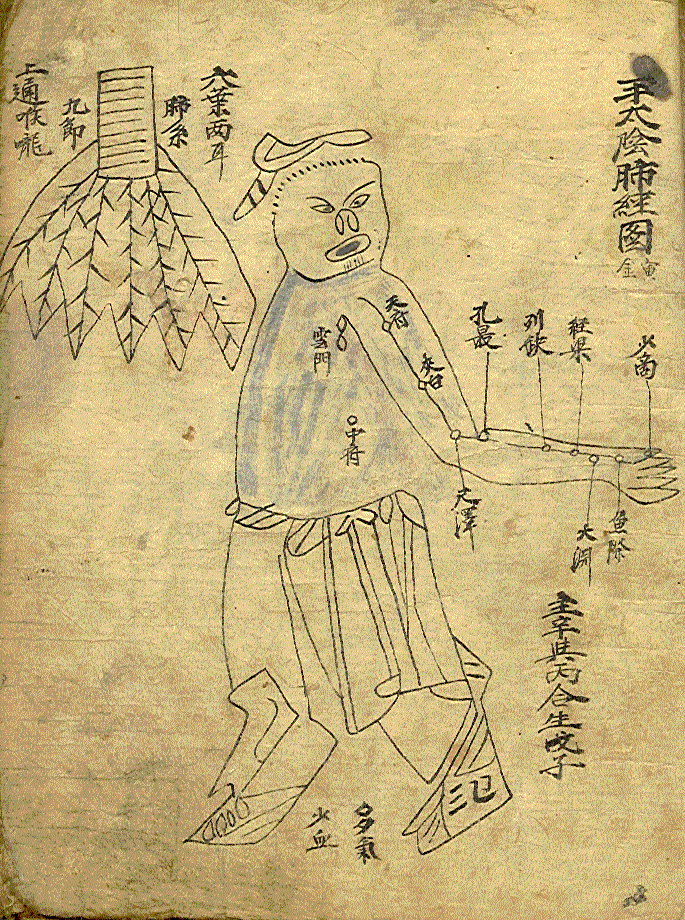 手太陰肺經圖
寅金
少商
経渠
列缺
孔最
天府
夾白
雲門
中府
尺澤
大淵
魚際
六葉兩耳
肺系
九節
上通喉嚨
主辛與丙合生
多氣
少血